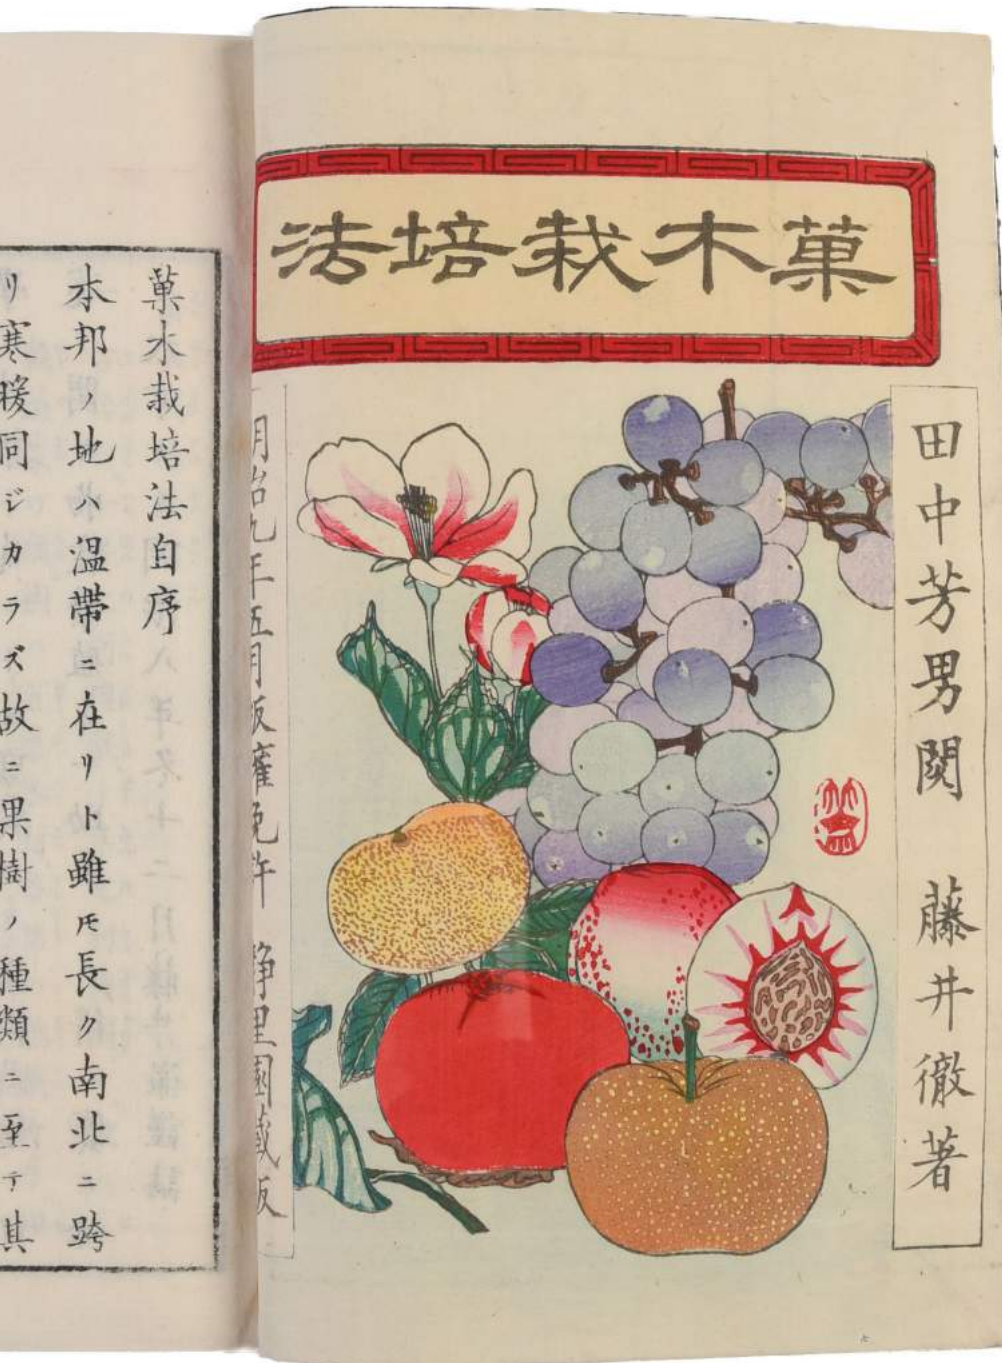 菓木栽培法
田中芳男閲 藤井徹著
明治九年五月版権免許 静里園蔵版
菓木栽培法自序
本邦ノ地ハ温帶ニ在リト雖𪜈長ク南北ニ跨
リ寒暖同ジカラズ故ニ果樹ノ種類ニ至テ其